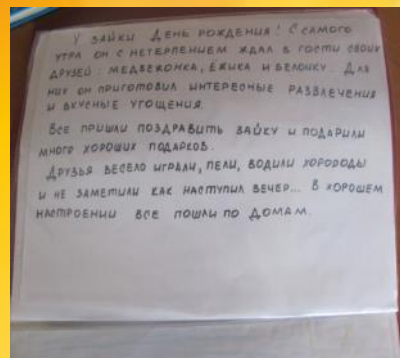 У ЗАЙКИ ДЕНЬ РОЖДЕНИЯ! С САМОГО
УТРА ОН С НЕТЕРПЕНИЕМ ЖДАЛ В ГОСТИ СВОИХ
ДРУЗЕЙ: МЕДВЕЖОНКА, ЁЖИКА И БЕЛОЧКУ. ДЛЯ
НИХ ОН ПРИГОТОВИЛ ИНТЕРЕСНЫЕ РАЗВЛЕЧЕНИЯ
И ВКУСНЫЕ УГОЩЕНИЯ.
ВСЕ ПРИШЛИ ПОЗДРАВИТЬ ЗАЙКУ И ПОДАРИЛИ
МНОГО ХОРОШИХ ПОДАРКОВ.
ДРУЗЬЯ ВЕСЕЛО ИГРАЛИ, ПЕЛИ, ВОДИЛИ ХОРОВОДЫ
И НЕ ЗАМЕТИЛИ КАК НАСТУПИЛ ВЕЧЕР... В ХОРОШЕМ
НАСТРОЕНИИ ВСЕ ПОШЛИ ПО ДОМАМ.